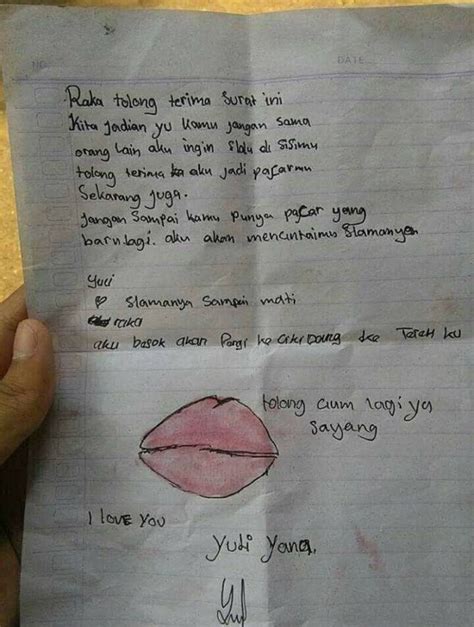 NO.
DATE
Raka tolong terima surat ini
Kita Jadian yu kamu jangan sama
orang lain aku ingin slalu di sisimu
tolong terima aku jadi pacarmu
Sekarang juga.
Jangan sampai kamu punya pacar yang
baru lagi. aku akan mencintaimu slamanya
Yuli
slamanya sampai mati
raka
aku besok akan Pergi ke
tolong cium lagi ya
sayang
I LOVE YOU
Yuli Yana.
Yul